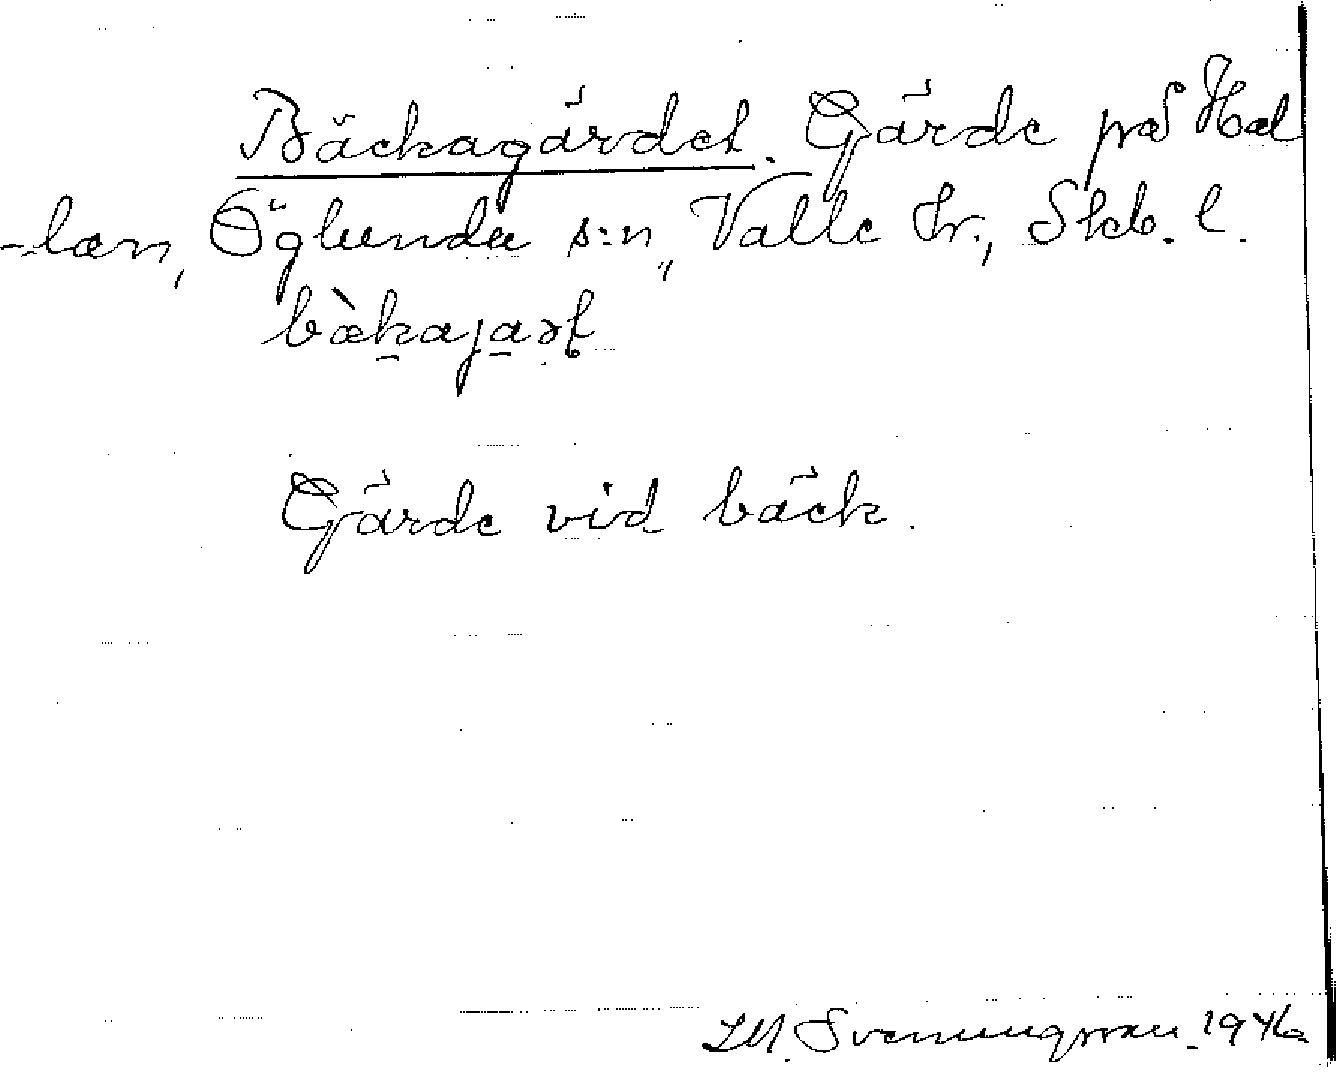 Bäckagärdet. Gärde på Hal
-lan, Öglunda s:n, Valle hr., Skb. l.
bàkajaṣt
Gärde vid bäck.
M. Svenungsson 1946